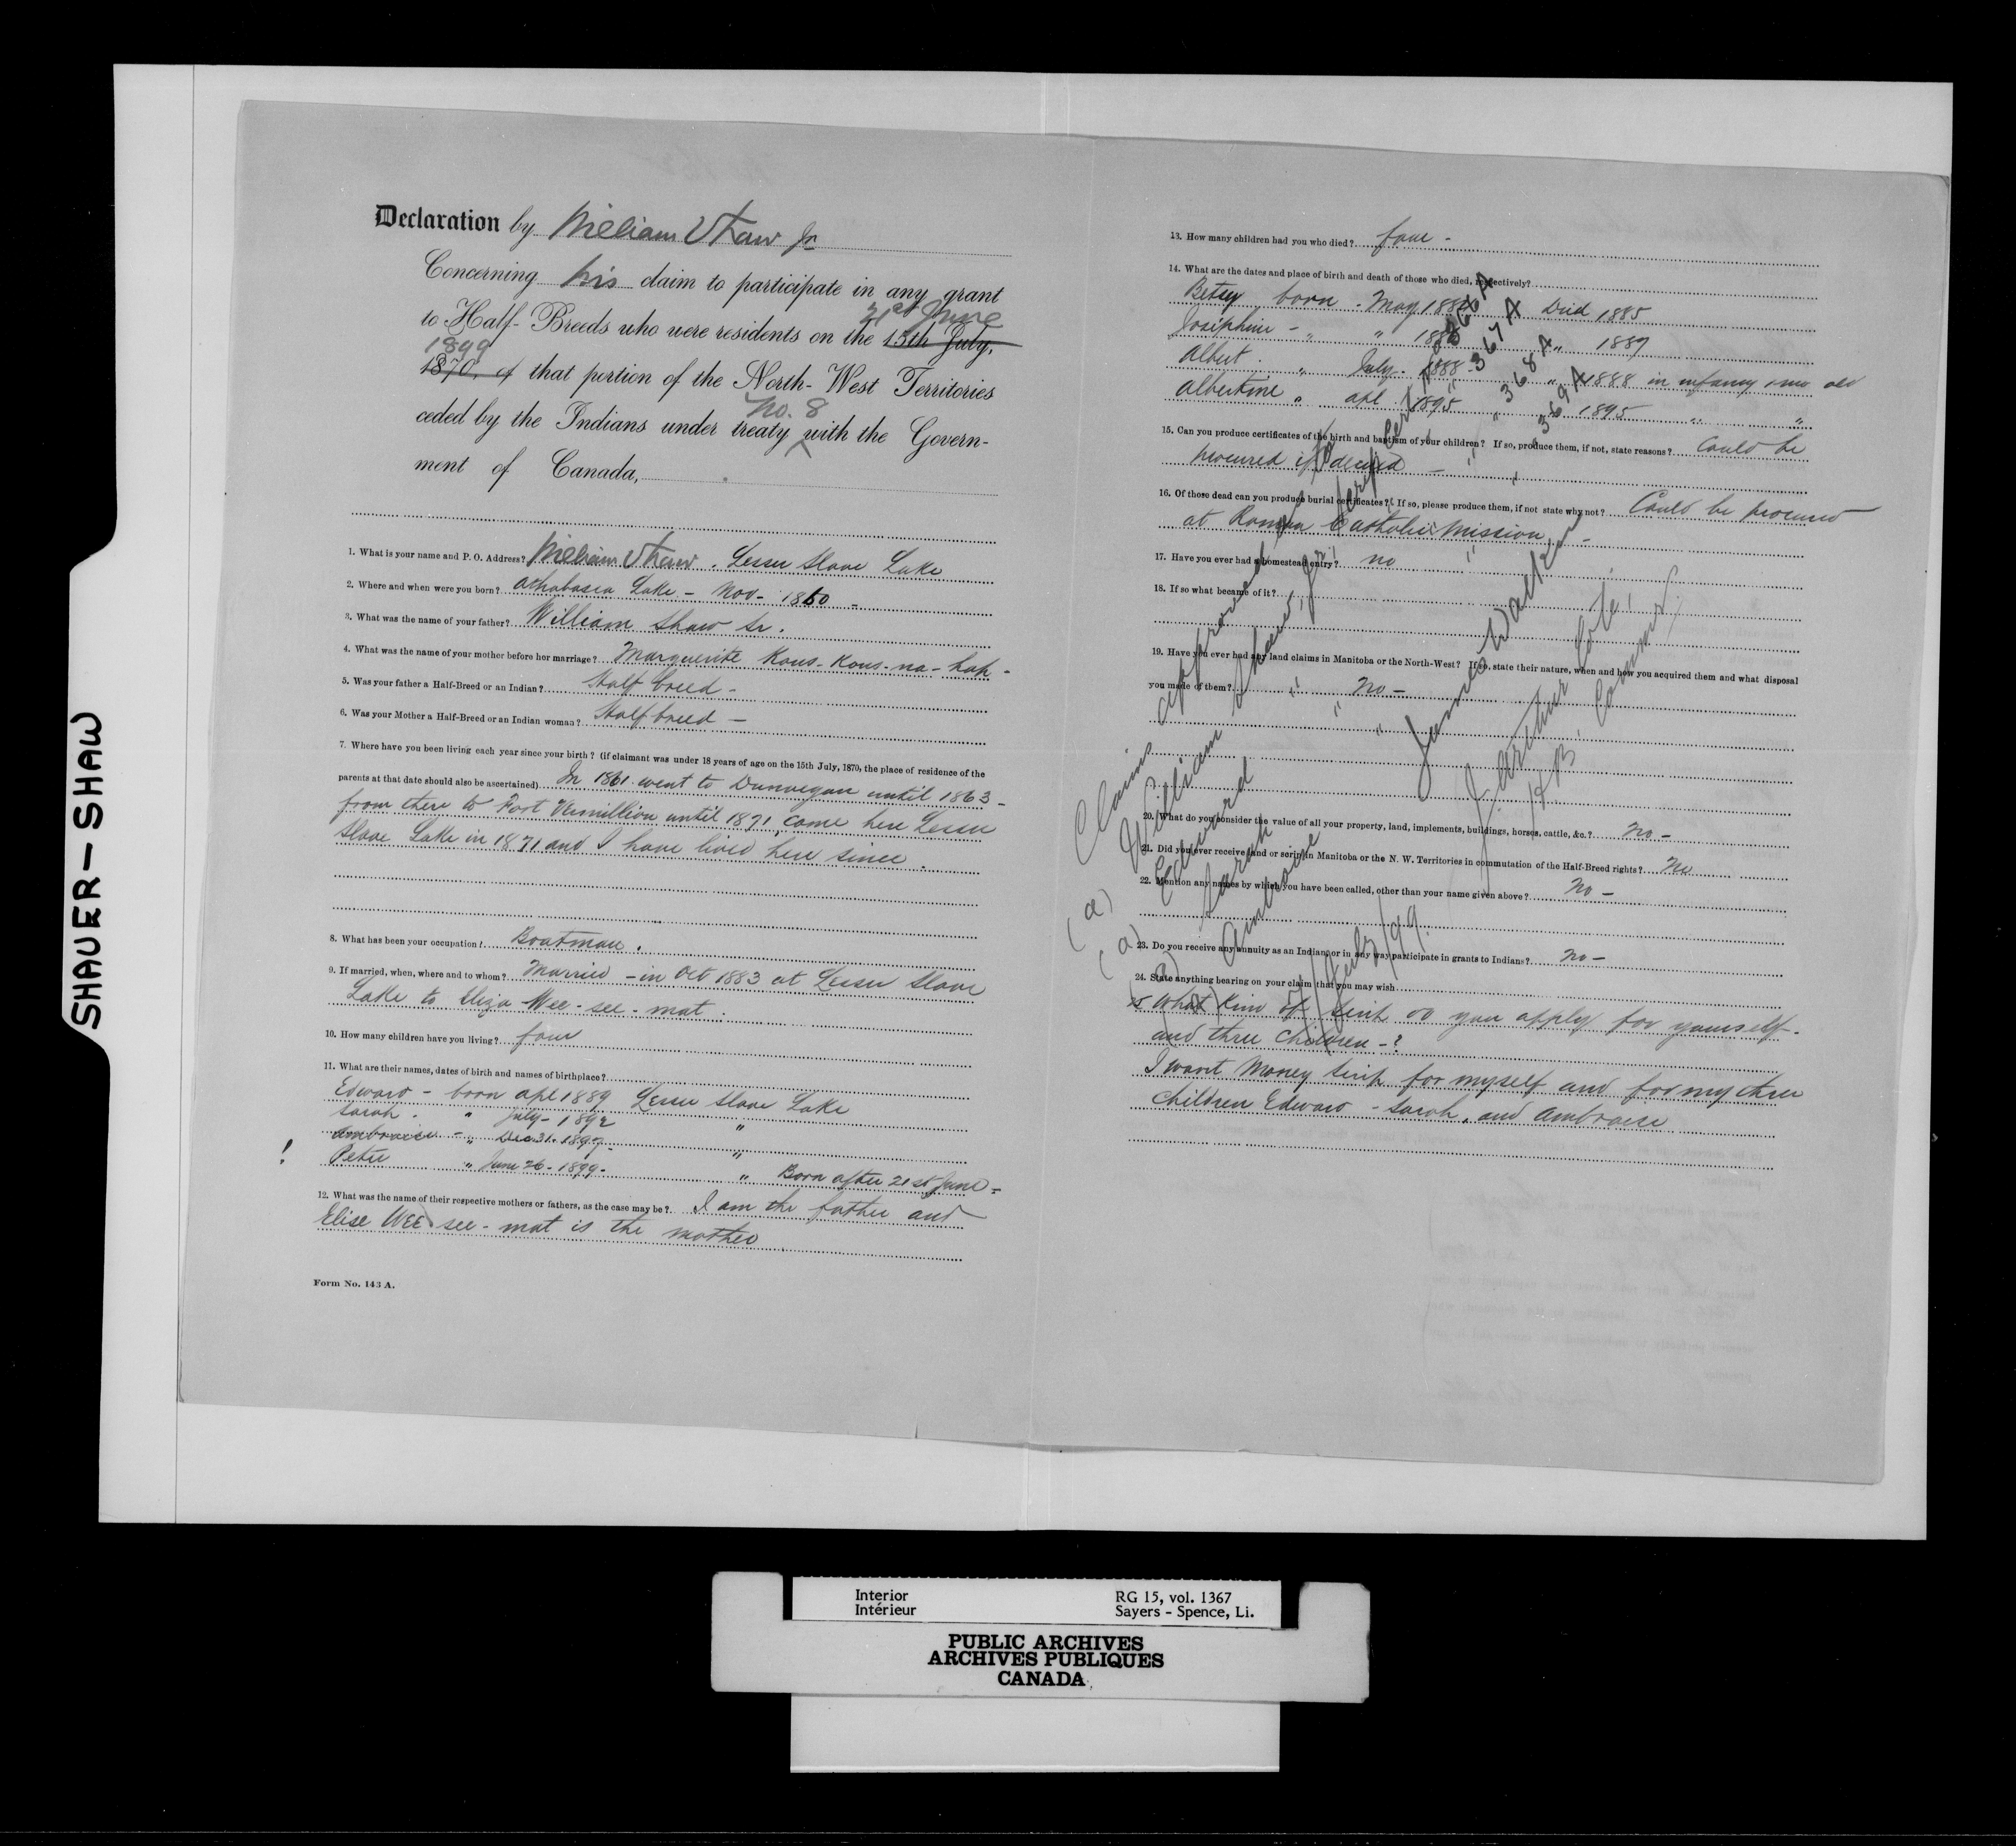 SHAUER-SHAW
Declaration by William Shaw Jr
Concerning his claim to participate in any grant
21st June
to Half-Breeds who were residents on the 15th July,
1899
1870, of that portion of the North-West Territories
No. 8
ceded by the Indians under treaty with the Govern-
ment of Canada,
1. What is your name and P. O. Address? William Shaw. Lesser Slave Lake
2. Where and when were you born? Athabasca Lake - Nov - 1860 -
3. What was the name of your father? William Shaw Sr.
4. What was the name of your mother before her marriage? Marguerite Kous-Kous-na-hah -
5. Was your father a Half-Breed or an Indian? Half breed -
6. Was your Mother a Half-Breed or an Indian woman? Half breed -
7. Where have you been living each year since your birth? (if claimant was under 18 years of age on the 15th July, 1870, the place of residence of the
parents at that date should also be ascertained) In 1861 went to Dunvegan until 1863 -
from there to Fort Vermillion until 1871, came here Lesser
Slave Lake in 1871 and I have lived here since.
8. What has been your occupation? Boatman.
9. If married, when, where and to whom? Married - in Oct 1883 at Lesser Slave
Lake to Eliza Wee-see-mat.
10. How many children have you living? four
11. What are their names, dates of birth and names of birthplace?
Edward - born apl 1889 Lesser Slave Lake
Sarah - " July - 1892 "
Ambroise - " Dec 31 - 1897 - "
! Peter " June 26 - 1899 - " Born after 21st June -
12. What was the name of their respective mothers or fathers, as the case may be? I am the father and
Elise Wee-see-mat is the mother
Form No. 143 A.
13. How many children had you who died? four -
14. What are the dates and place of birth and death of those who died, respectively?
Betsy born. May 1884 Died 1885
Josephine - " " 1886 " 1887
Albert. " July. 1888 - " 1888 in infancy 1 mo old
Albertine " apl 1895 " 1895 " "
15. Can you produce certificates of the birth and baptism of your children? If so, produce them, if not, state reasons? Could be
procured if desired -
16. Of those dead can you produce burial certificates? If so, please produce them, if not state why not? Could be procured
at Roman Catholic Mission -
17. Have you ever had a homestead entry? no
18. If so what became of it?
19. Have you ever had any land claims in Manitoba or the North-West? If so, state their nature, when and how you acquired them and what disposal
you made of them? No -
20. What do you consider the value of all your property, land, implements, buildings, horses, cattle, &c.? No -
21. Did you ever receive land or scrip in Manitoba or the N. W. Territories in commutation of the Half-Breed rights? No
22. Mention any names by which you have been called, other than your name given above? No -
23. Do you receive any annuity as an Indian, or in any way participate in grants to Indians? No -
24. State anything bearing on your claim that you may wish
What kind of scrip do you apply for yourself -
and three children - ?
I want Money scrip for myself and for my three
children Edward - Sarah, and Ambroise
Claims approved
William Shaw, Jr.
(a) Edward " "
(a) Sarah " "
(a) Ambroise " "
366 A
367 A
368 A
369 A
James Walker
J. Arthur Coté,
H.B. Commrs.
July/99.
Interior
Intérieur
RG 15, vol. 1367
Sayers - Spence, Li.
PUBLIC ARCHIVES
ARCHIVES PUBLIQUES
CANADA